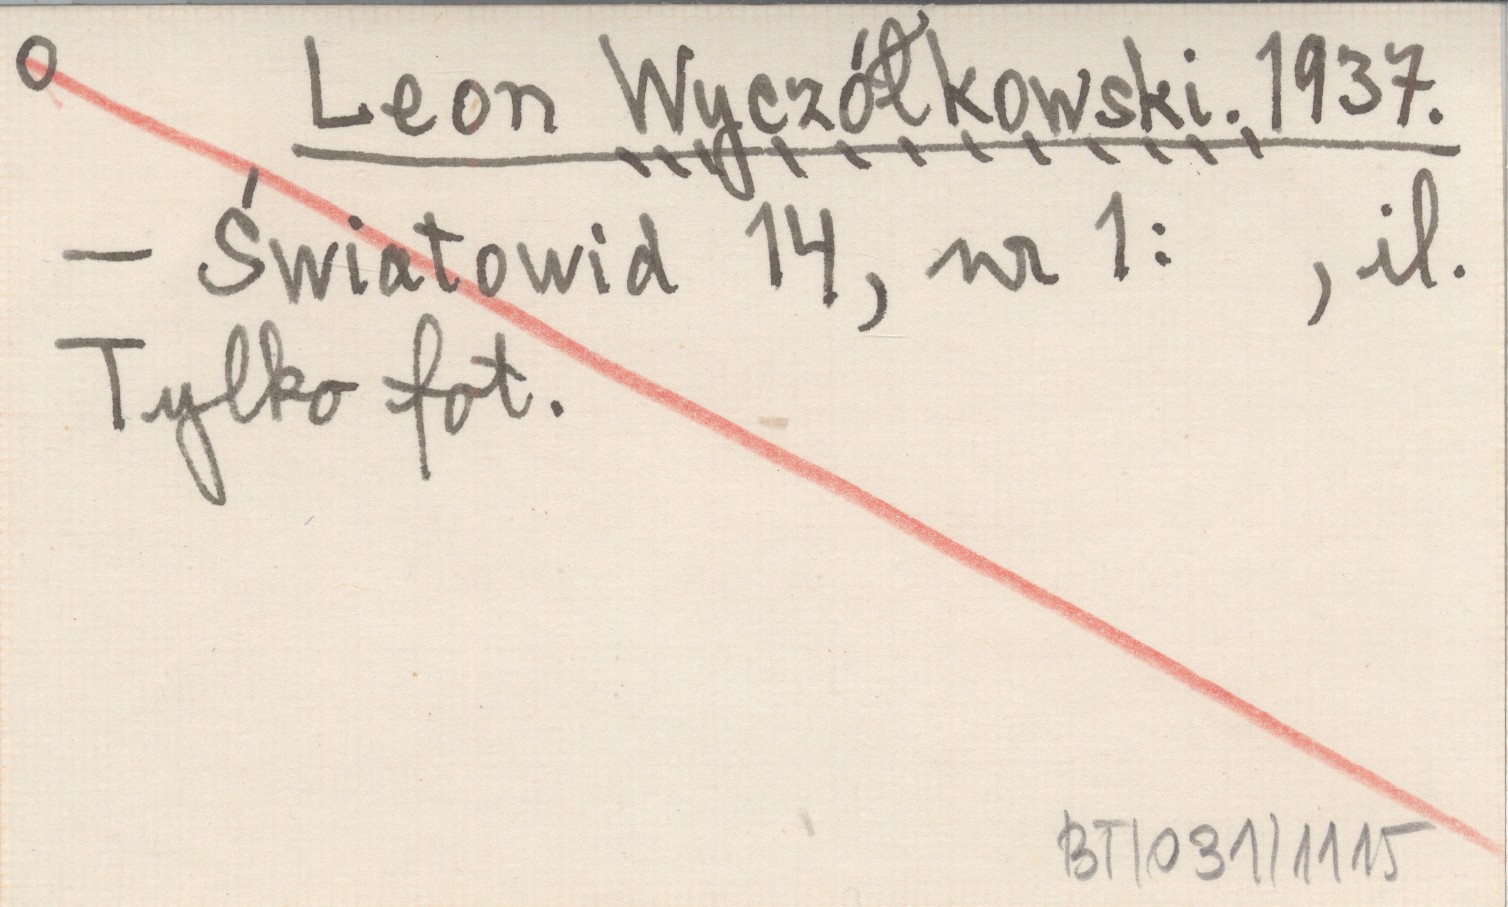 O Leon Wyczółkowski. 1937.
— Światowid 14, nr 1: , il.
Tylko fot.
BT/031/1115